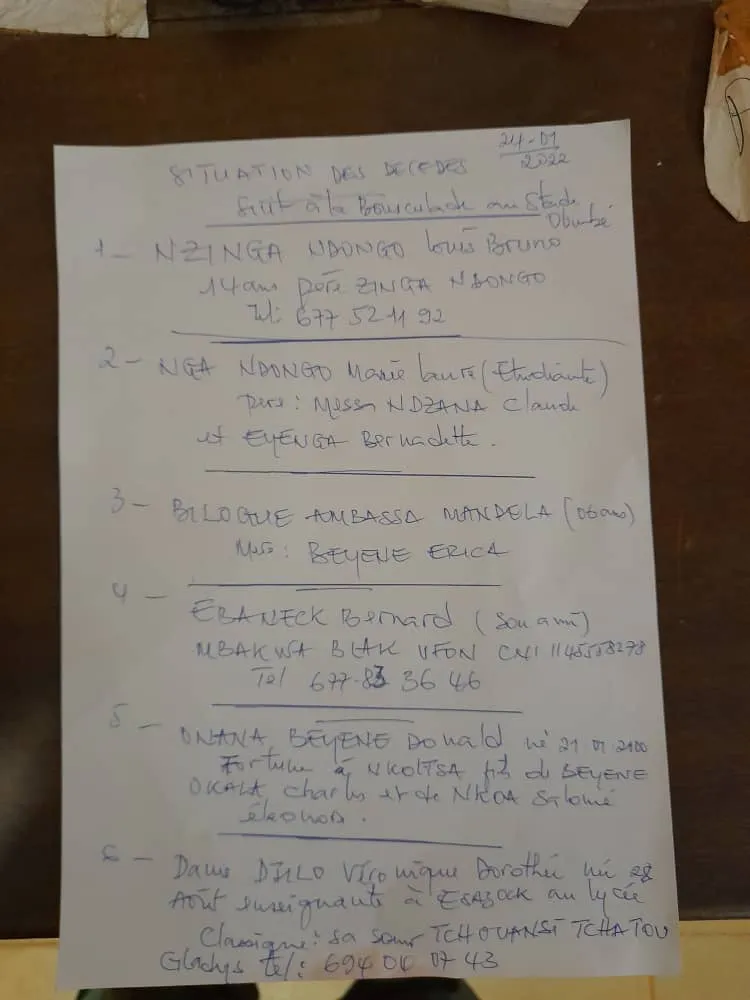 24-01
2022
SITUATION DES DECEDES
Suit à la Bousculade au Stade
Olembé
1- NZINGA NDONGO Louis Bruno
14 ans père ZINGA NDONGO
Tel: 677 52 11 92
2- NGA NDONGO Marie Laure (Etudiante)
Père: Messa NDZANA Claude
et EYENGA Bernadette.
3- BILOGUE AMBASSA MANDELA (06 ans)
Mère: BEYENE ERICA
4-
EBANECK Bernard (Son ami)
MBAKWA BLAK VFON CNI
Tel 677-83 36 46
5- ONANA BEYENE Donald né 21 01
Fortune à NKOLTSA fils de BEYENE
OKALA Charles et de NKOA Salomé
6- Dame Véronique Dorothée né 28
Août enseignante à au lycée
Classique: sa soeur TCHOUANSI TCHATOU
Gladys tel: 694 00 07 43